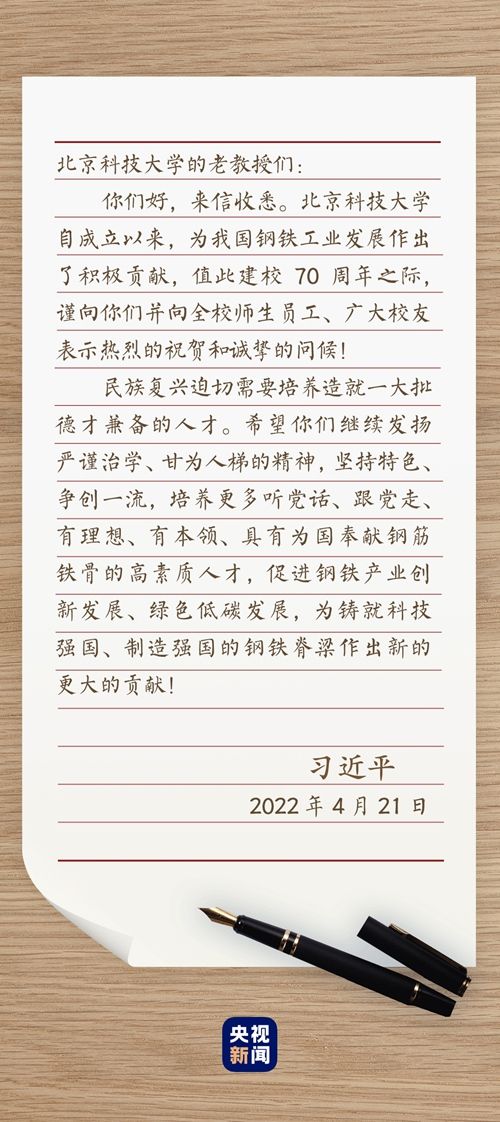 北京科技大学的老教授们：
你们好，来信收悉。北京科技大学
自成立以来，为我国钢铁工业发展作出
了积极贡献，值此建校 70 周年之际，
谨向你们并向全校师生员工、广大校友
表示热烈的祝贺和诚挚的问候！
民族复兴迫切需要培养造就一大批
德才兼备的人才。希望你们继续发扬
严谨治学、甘为人梯的精神，坚持特色、
争创一流，培养更多听党话、跟党走、
有理想、有本领、具有为国奉献钢筋
铁骨的高素质人才，促进钢铁产业创
新发展、绿色低碳发展，为铸就科技
强国、制造强国的钢铁脊梁作出新的
更大的贡献！
习近平
2022 年 4 月 21 日
央视
新闻